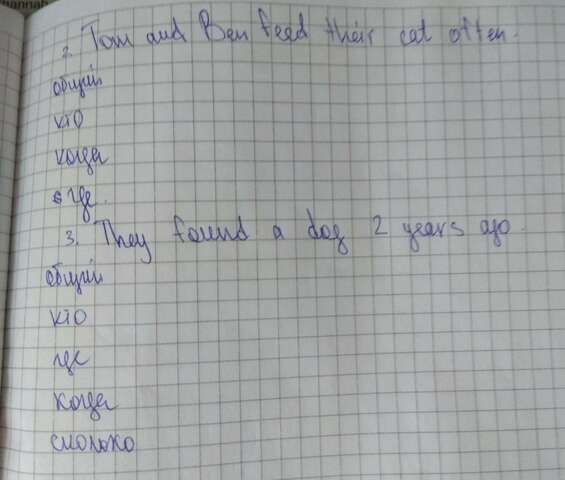 hannah
2. Tom and Ben feed their cat often.
общий
кто
когда
где.
3. They found a dog 2 years ago.
общий
кто
где
когда
сколько